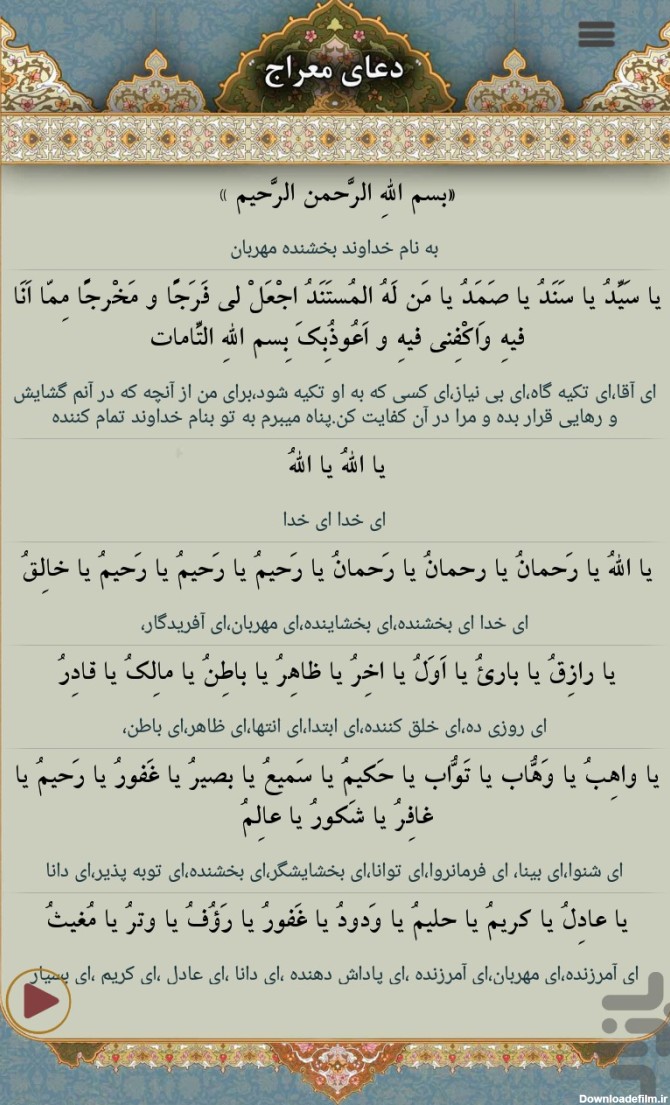 دعای معراج
«بسم اللهِ الرَّحمن الرَّحیم »
به نام خداوند بخشنده مهربان
یا سَیِّدُ یا سَنَدُ یا صَمَدُ یا مَن لَهُ المُستَنَدُ اجْعَلْ لی فَرَجًا و مَخْرجًا مِمّا اَنَا
فیهِ وَاکْفِنی فیهِ و اَعُوذُبِکَ بِسم اللهِ التّامات
ای آقا،ای تکیه گاه،ای بی نیاز،ای کسی که به او تکیه شود،برای من از آنچه که در آنم گشایش
و رهایی قرار بده و مرا در آن کفایت کن.پناه میبرم به تو بنام خداوند تمام کننده
یا اللهُ یا اللهُ
ای خدا ای خدا
یا اللهُ یا رَحمانُ یا رحمانُ یا رَحمانُ یا رَحیمُ یا رَحیمُ یا رَحیمُ یا خالِقُ
ای خدا ای بخشنده،ای بخشاینده،ای مهربان،ای آفریدگار،
یا رازِقُ یا بارئُ یا اَوَلُ یا اخِرُ یا ظاهِرُ یا باطِنُ یا مالِکُ یا قادِرُ
ای روزی ده،ای خلق کننده،ای ابتدا،ای انتها،ای ظاهر،ای باطن،
یا واهِبُ یا وَهُّاب یا تَوُّاب یا حَکیمُ یا سَمیعُ یا بصیرُ یا غَفورُ یا رَحیمُ یا
غافِرُ یا شَکورُ یا عالِمُ
ای شنوا،ای بینا، ای فرمانروا،ای توانا،ای بخشایشگر،ای بخشنده،ای توبه پذیر،ای دانا
یا عادِلُ یا کریمُ یا حلیمُ یا وَدودُ یا غَفورُ یا رَؤُفُ یا وترُ یا مُغیثُ
ای آمرزنده،ای مهربان،ای آمرزنده ،ای پاداش دهنده ،ای دانا ،ای عادل ،ای کریم ،ای بسیار
بازار
Downloadefilm.ir